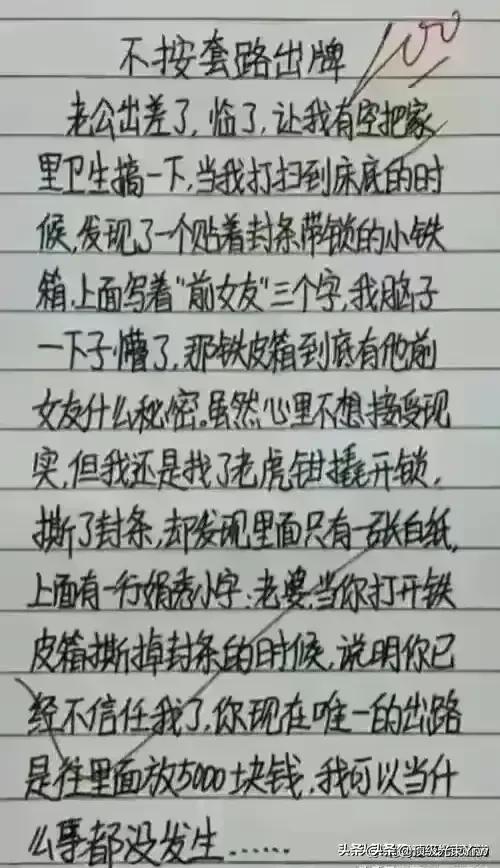 不按套路出牌
老公出差了,临了,让我有空把家
里卫生搞一下,当我打扫到床底的时
候,发现了一个贴着封条带锁的小铁
箱,上面写着"前女友"三个字,我脑子
一下子懵了,那铁皮箱到底有他前
女友什么秘密。虽然心里不想接受现
实,但我还是找了老虎钳撬开锁,
撕了封条,却发现里面只有一张白纸,
上面有一行娟秀小字:老婆,当你打开铁
皮箱撕掉封条的时候,说明你已
经不信任我了,你现在唯一的出路
是往里面放5000块钱,我可以当什
么事都没发生......
头条 @顶级光束YxO